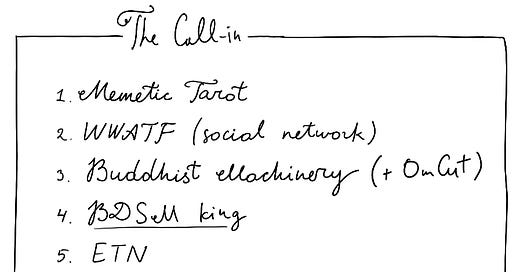 The Call-in
1. Memetic Tarot
2. WWATF (social network)
3. Buddhist Machinery (+ OmCut)
4. BDSM king
5. ETN